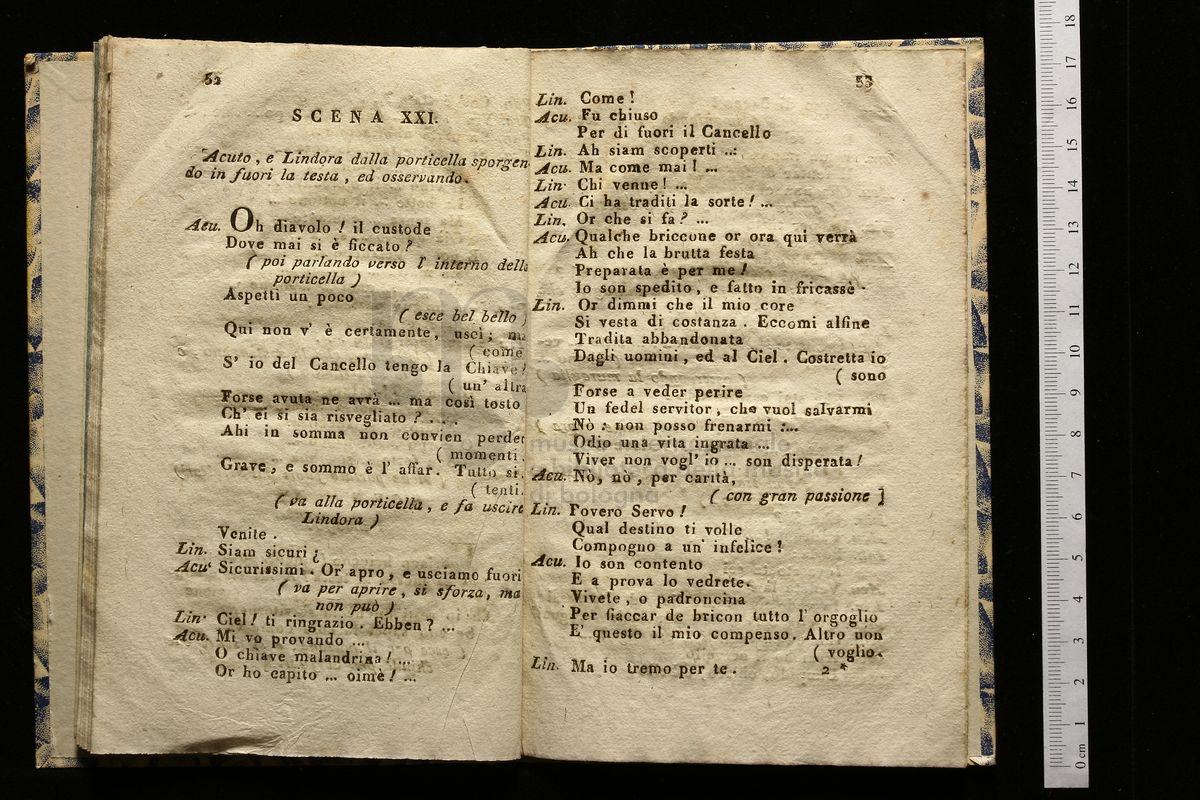 52
SCENA XXI.
Acuto, e Lindora dalla porticella sporgen
do in fuori la testa, ed osservando.
Acu. Oh diavolo! il custode
Dove mai si è ficcato?
( poi parlando verso l' interno della
porticella )
Aspetti un poco
( esce bel bello )
Qui non v' è certamente, uscì; ma
( come
S' io del Cancello tengo la Chiave!
( un' altra
Forse avuta ne avrà ... ma così tosto
Ch' ei si sia risvegliato? ....
Ahi in somma non convien perder
( momenti.
Grave, e sommo è l' affar. Tutto si
( tenti.
( va alla porticella, e fa uscire
Lindora )
Venite.
Lin. Siam sicuri?
Acu. Sicurissimi. Or' apro, e usciamo fuori
( va per aprire, si sforza, ma
non può )
Lin. Ciel! ti ringrazio. Ebben? ...
Acu. Mi vo provando ....
O chiave malandrina! ...
Or ho capito ... oimè! ...
53
Lin. Come!
Acu. Fu chiuso
Per di fuori il Cancello
Lin. Ah siam scoperti ...
Acu. Ma come mai! ...
Lin. Chi venne! ...
Acu. Ci ha traditi la sorte! ...
Lin. Or che si fa? ...
Acu. Qualche briccone or ora qui verrà
Ah che la brutta festa
Preparata è per me!
Io son spedito, e fatto in fricassè.
Lin. Or dimmi che il mio core
Si vesta di costanza. Eccomi alfine
Tradita abbandonata
Dagli uomini, ed al Ciel. Costretta io
( sono
Forse a veder perire
Un fedel servitor, che vuol salvarmi
Nò: non posso frenarmi :...
Odio una vita ingrata ...
Viver non vogl' io ... son disperata!
Acu. Nò, nò, per carità,
( con gran passione ]
Lin. Povero Servo!
Qual destino ti volle
Compogno a un' infelice!
Acu. Io son contento
E a prova lo vedrete.
Vivete, o padroncina
Per fiaccar de bricon tutto l' orgoglio
E' questo il mio compenso. Altro non
( voglio.
Lin. Ma io tremo per te.
2 *